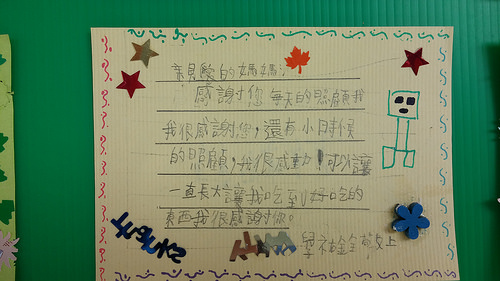 親愛的媽媽：
感謝您每天的照顧我
我很感謝您，還有小時候
的照顧，我很感動！可以讓
一直長大讓我吃到好吃的
東西我很感謝你。
敬上